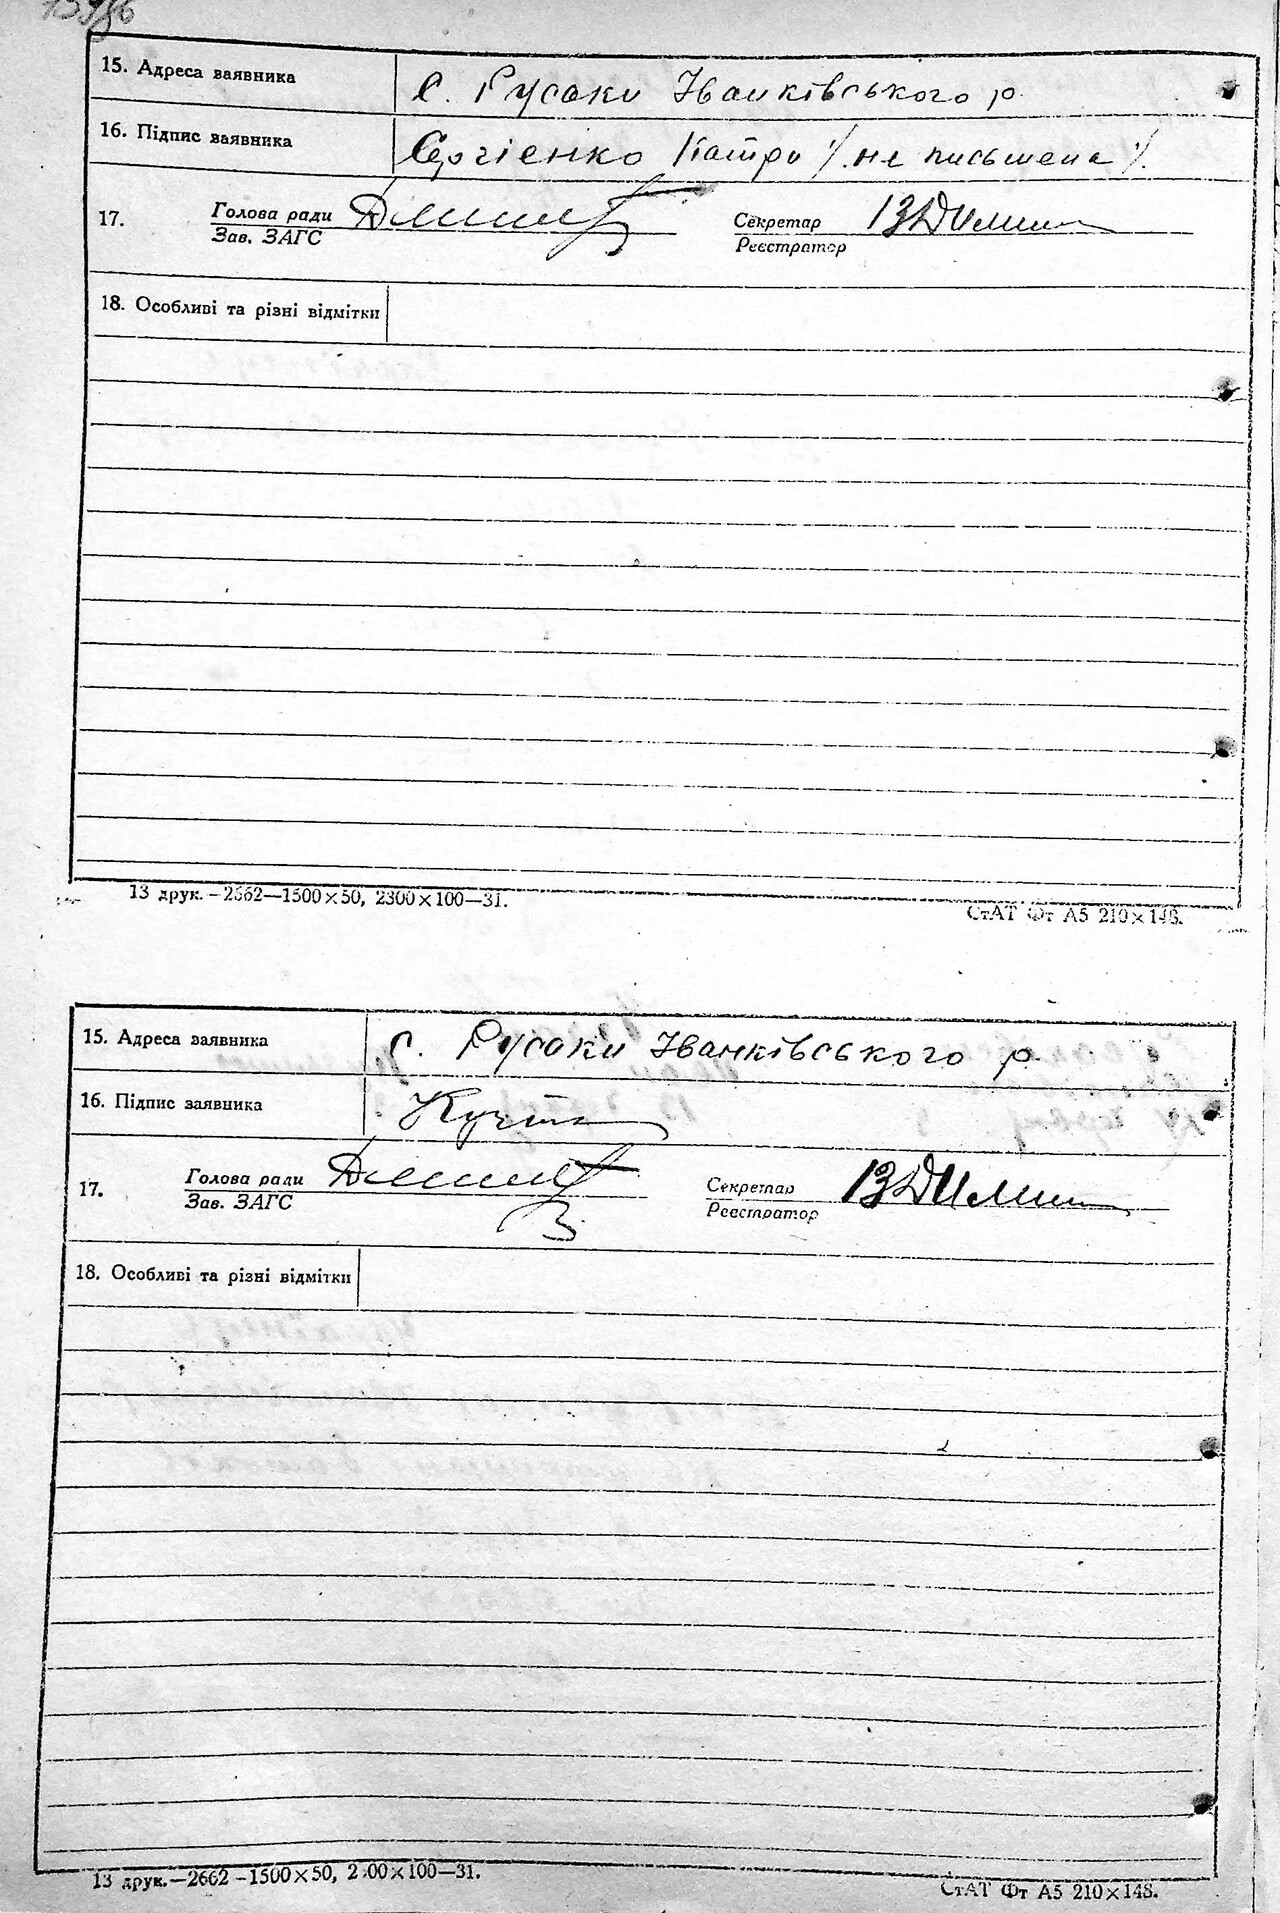 15. Адреса заявника
с. Русаки Іванківського р.
16. Підпис заявника
Сергієнко Катри /. не письмена /.
17. Голова ради Секретар
Зав. ЗАГС Реєстратор
18. Особливі та різні відмітки
13 друк.—2662—1500×50, 2300×100—31.
СтАТ Фт А5 210×148.
15. Адреса заявника
с. Русаки Іванківського р.
16. Підпис заявника
17. Голова ради Секретар
Зав. ЗАГС Реєстратор
18. Особливі та різні відмітки
13 друк.—2662—1500×50, 2300×100—31.
СтАТ Фт А5 210×148.